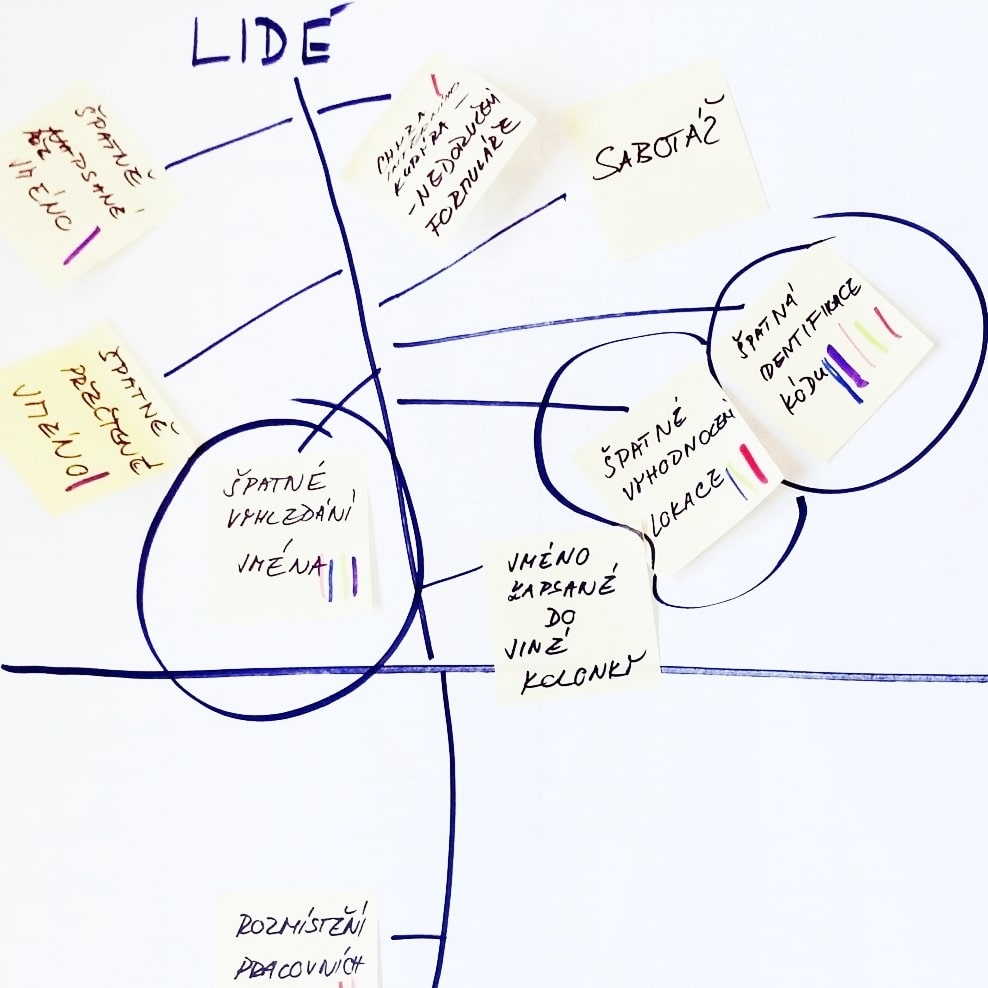 LIDÉ
ŠPATNĚ
NAPSANÉ
JMÉNO
CHYBA
KURÝRA –
– NEDORUČENÍ
FORMULÁŘE
SABOTÁŽ
ŠPATNÁ
IDENTIFIKACE
KÓDU
ŠPATNĚ
PŘEČTENÉ
JMÉNO
ŠPATNÉ
VYHODNOCENÍ
LOKACE
ŠPATNÉ
VYHLEDÁNÍ
JMÉNA
JMÉNO
ZAPSANÉ
DO
JINÉ
KOLONKY
ROZMÍSTĚNÍ
PRACOVNÍCH